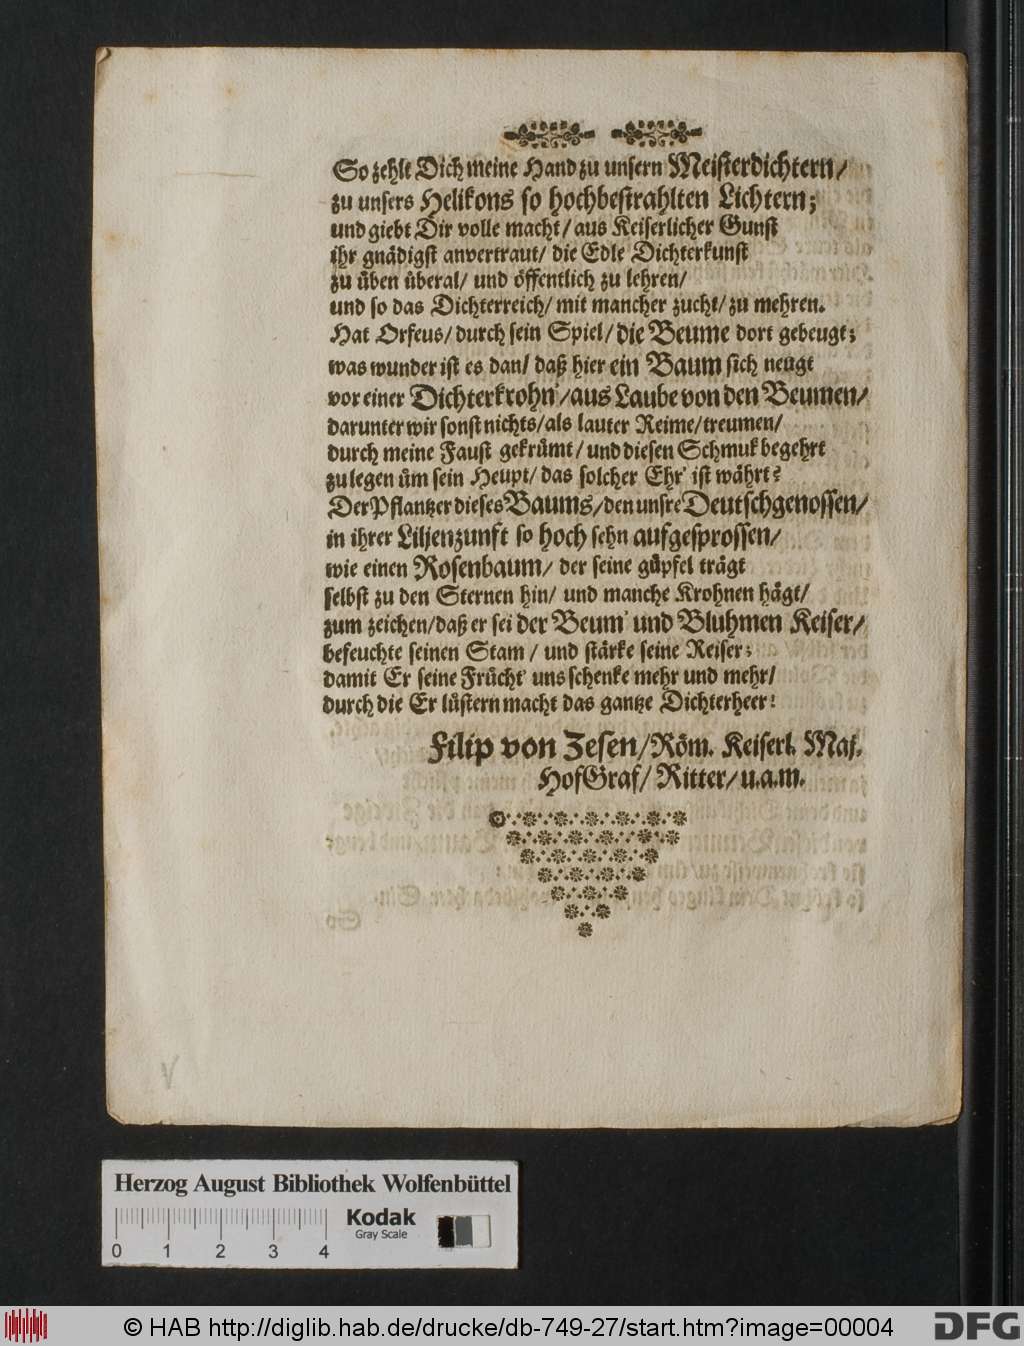 So zehlt Dich meine Hand zu unsern Meisterdichtern/
zu unsers Helikons so hochbestrahlten Lichtern;
und giebt Dir volle macht/ aus Keiserlicher Gunst
ihr gnädigst anvertraut/ die Edle Dichterkunst
zu üben überal/ und öffentlich zu lehren/
und so das Dichterreich/ mit mancher zucht/ zu mehren.
Hat Orfeus/ durch sein Spiel/ die Beume dort gebeugt;
was wunder ist es dan/ daß hier ein Baum sich neugt
vor einer Dichterkrohn'/ aus Laube von den Beumen/
darunter wir sonst nichts/ als lauter Reime/ treumen/
durch meine Faust gekrümt/ und diesen Schmuk begehrt
zu legen üm sein Heupt/ das solcher Ehr' ist währt?
Der Pflantzer dieses Baums/ den unsre Deutschgenossen/
in ihrer Liljenzunft so hoch sehn aufgesprossen/
wie einen Rosenbaum/ der seine güpfel trägt
selbst zu den Sternen hin/ und manche Krohnen hägt/
zum zeichen/ daß er sei der Beum' und Bluhmen Keiser/
befeuchte seinen Stam/ und stärke seine Reiser;
damit Er seine Frücht' uns schenke mehr und mehr/
durch die Er lüstern macht das gantze Dichterheer!
Filip von Zesen/ Röm. Keiserl. Maj.
HofGraf/ Ritter/ u.a.m.
Herzog August Bibliothek Wolfenbüttel
Kodak
Gray Scale
0 1 2 3 4
© HAB http://diglib.hab.de/drucke/db-749-27/start.htm?image=00004
DFG